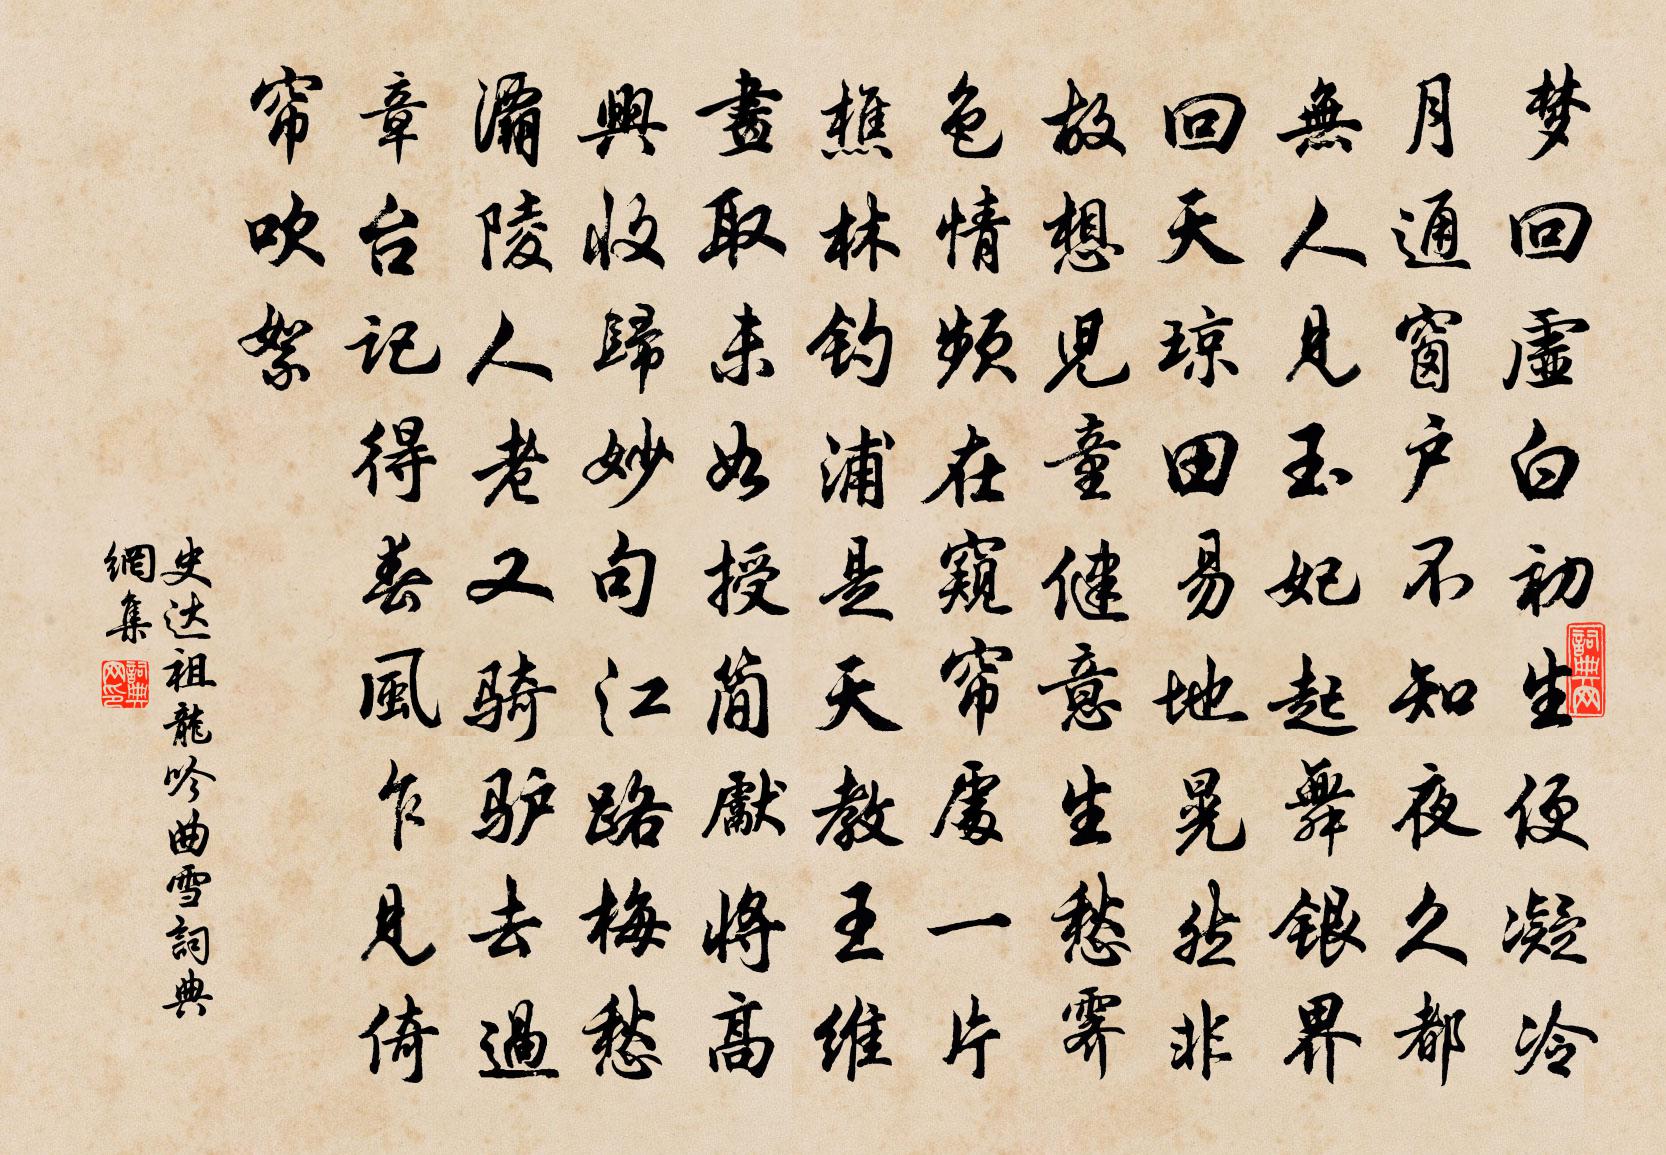 梦回虛白初生便凝冷
月通窗户不知夜久都
無人見玉妃起舞銀界
回天琼田易地晃然非
故想児童健意生愁霽
色情頻在窺帘處一片
樵林钓浦是天教王維
畫取未如授简獻將高
興收歸妙句江路梅愁
灞陵人老又骑驴去過
章台記得春風乍見倚
帘吹絮
史达祖龍吟曲雪詞典
網集
詞典网
詞典网印